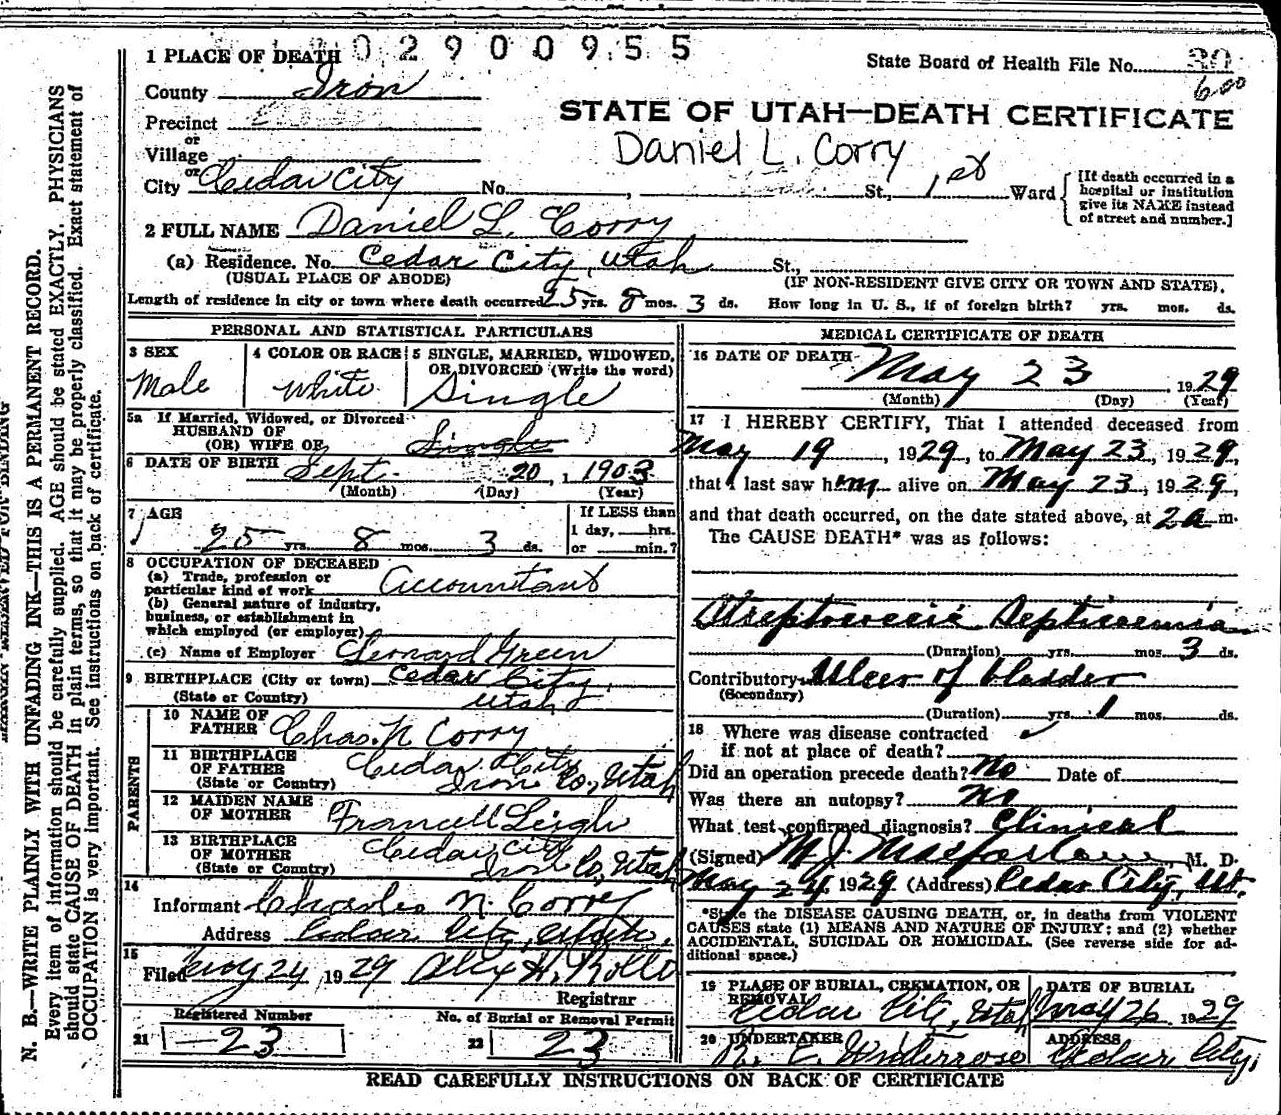 02900955
1 PLACE OF DEATH
State Board of Health File No. 30
600
County Iron
STATE OF UTAH—DEATH CERTIFICATE
Precinct
or
Village
Daniel L. Corry
or
City Cedar City No. , St., 1st Ward
[If death occurred in a hospital or institution give its NAME instead of street and number.]
2 FULL NAME Daniel L. Corry
(a) Residence. No. Cedar City, Utah St.,
(USUAL PLACE OF ABODE) (IF NON-RESIDENT GIVE CITY OR TOWN AND STATE).
Length of residence in city or town where death occurred 25 yrs. 8 mos. 3 ds. How long in U. S., if of foreign birth? yrs. mos. ds.
PERSONAL AND STATISTICAL PARTICULARS
3 SEX
Male
4 COLOR OR RACE
White
5 SINGLE, MARRIED, WIDOWED,
OR DIVORCED (Write the word)
Single
5a If Married, Widowed, or Divorced
HUSBAND OF
(OR) WIFE OF Single
6 DATE OF BIRTH Sept. 20, 1903
(Month) (Day) (Year)
7 AGE
25 yrs. 8 mos. 3 ds.
If LESS than
1 day, hrs.
or min.?
8 OCCUPATION OF DECEASED
(a) Trade, profession or
particular kind of work Accountant
(b) General nature of industry,
business, or establishment in
which employed (or employer)
(c) Name of Employer Leonard Green
9 BIRTHPLACE (City or town) Cedar City,
(State or Country) Utah
PARENTS
10 NAME OF
FATHER Chas. N. Corry
11 BIRTHPLACE
OF FATHER
(State or Country) Cedar City
Iron Co., Utah
12 MAIDEN NAME
OF MOTHER Leigh
13 BIRTHPLACE
OF MOTHER
(State or Country) Cedar City
Iron Co, Utah
14
Informant Charles N. Corry
Address Cedar City, Utah.
15
Filed May 24 1929 Alex H. Rollo
Registrar
Registered Number
21 23
No. of Burial or Removal Permit
22 23
MEDICAL CERTIFICATE OF DEATH
16 DATE OF DEATH May 23, 1929
(Month) (Day) (Year)
17 I HEREBY CERTIFY, That I attended deceased from
May 19, 1929, to May 23, 1929,
that I last saw him alive on May 23, 1929,
and that death occurred, on the date stated above, at 2 a m.
The CAUSE DEATH* was as follows:
Streptococcic Septicemia
(Duration) yrs. mos. 3 ds.
Contributory Ulcer of bladder
(Secondary)
(Duration) yrs. 1 mos. ds.
18 Where was disease contracted
if not at place of death?
Did an operation precede death? No Date of
Was there an autopsy? No
What test confirmed diagnosis? Clinical
(Signed) M. J. Macfarlane, M. D.
May 24, 1929 (Address) Cedar City, Ut.
*State the DISEASE CAUSING DEATH, or, in deaths from VIOLENT
CAUSES state (1) MEANS AND NATURE OF INJURY; and (2) whether
ACCIDENTAL, SUICIDAL OR HOMICIDAL. (See reverse side for ad-
ditional space.)
19 PLACE OF BURIAL, CREMATION, OR
REMOVAL
Cedar City, Utah
DATE OF BURIAL
May 26 1929
20 UNDERTAKER
ADDRESS
Cedar City,
READ CAREFULLY INSTRUCTIONS ON BACK OF CERTIFICATE
N. B.—WRITE PLAINLY WITH UNFADING INK—THIS IS A PERMANENT RECORD.
Every item of information should be carefully supplied. AGE should be stated EXACTLY. PHYSICIANS
should state CAUSE OF DEATH in plain terms, so that it may be properly classified. Exact statement of
OCCUPATION is very important. See instructions on back of certificate.